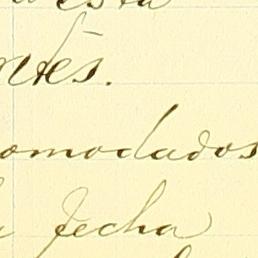 esta
ntes.
omodados
a fecha